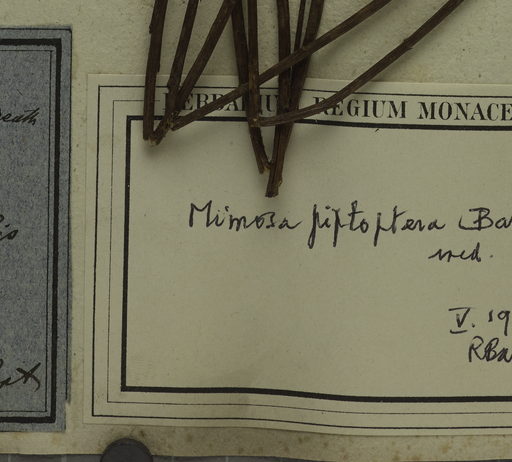 HERBARIUM REGIUM MONACE
Mimosa piptoptera (Ba
ined.
V. 19
RBa